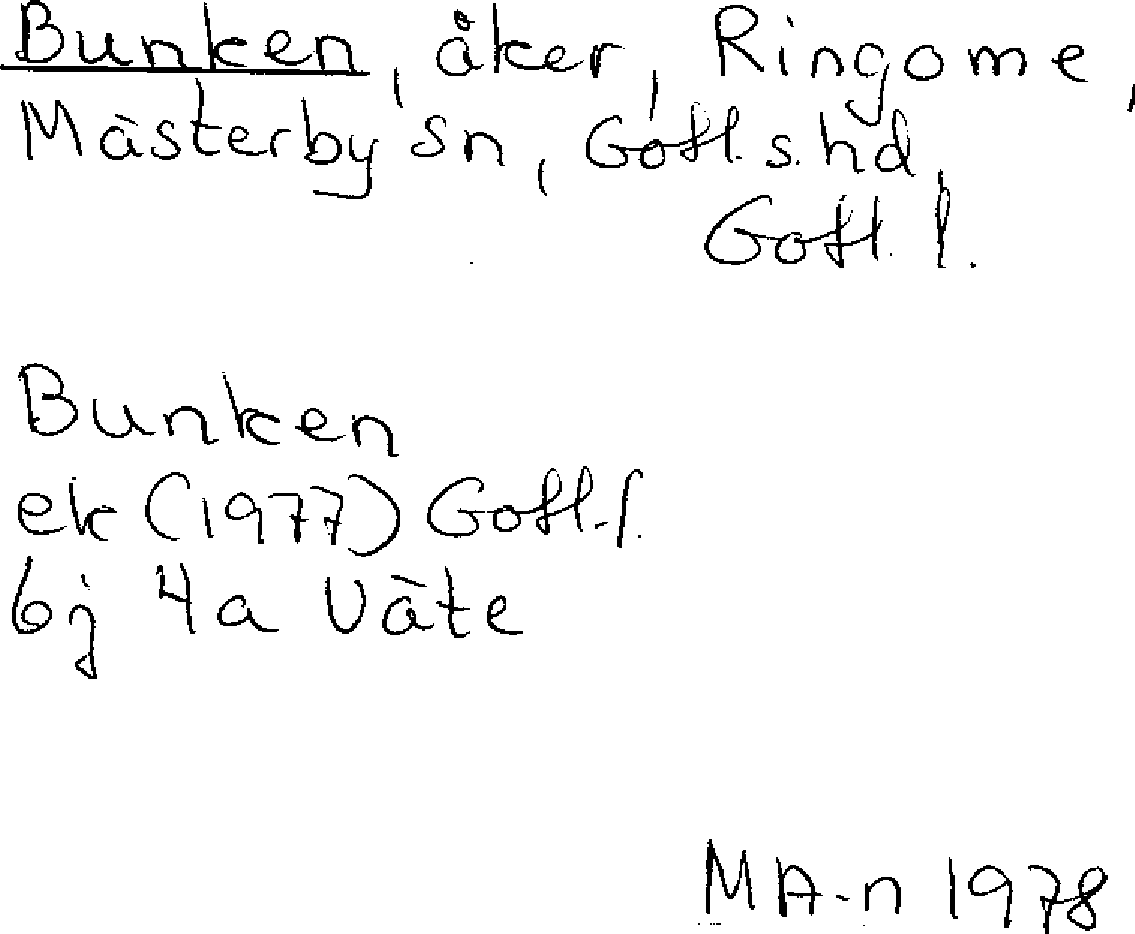 Bunken, åker, Ringome,
Mästerby sn, Gotl. s. hd,
Gotl. l.
Bunken
ek (1977) Gotl. l.
6j 4a Väte
MA-n 1978